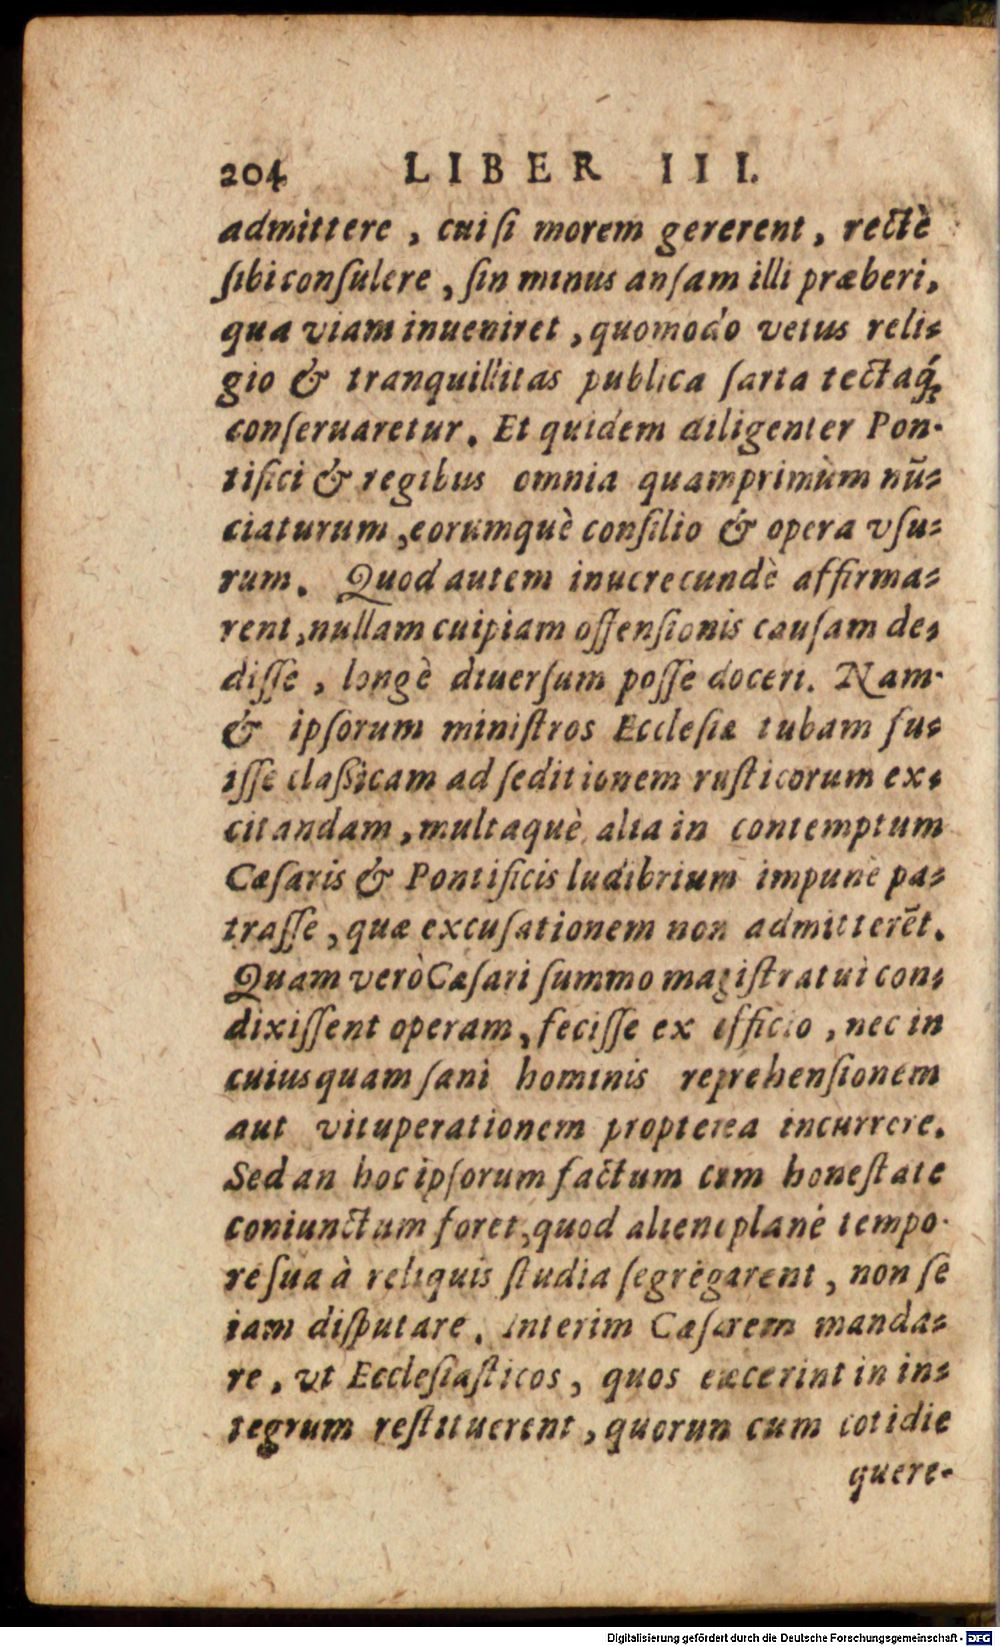 204 LIBER III.
admittere, cui ſi morem gererent, rectè
ſibi conſulere, ſin minus anſam illi præberi,
qua viam inueniret, quomodo vetus reli-
gio & tranquillitas publica ſarta tectaq́;
conſeruaretur. Et quidem diligenter Pon-
tifici & regibus omnia quamprimùm nū-
ciaturum, eorumquè conſilio & opera vſu-
rum. Quod autem inuerecundè affirma-
rent, nullam cuipiam offenſionis cauſam de-
diſſe, longè diuerſum poſſe doceri. Nam-
& ipſorum miniſtros Eccleſiæ tubam fu-
iſſe claßicam ad ſeditionem ruſticorum ex-
citandam, multaquè alia in contemptum
Cæſaris & Pontificis ludibrium impunè pa-
traſſe, quæ excuſationem non admitterēt.
Quam verò Cæſari ſummo magiſtratui con-
dixiſſent operam, feciſſe ex officio, nec in
cuiusquam ſani hominis reprehenſionem
aut vituperationem propterea incurrere.
Sed an hoc ipſorum factum cum honeſtate
coniunctum foret, quod alieni planè tempo-
re ſua à reliquis ſtudia ſegregarent, non ſe
iam diſputare. Interim Cæſarem manda-
re, vt Eccleſiaſticos, quos eiecerint in in-
tegrum reſtituerent, quorun cum cotidie
quere-
Digitalisierung gefördert durch die Deutsche Forschungsgemeinschaft - DFG